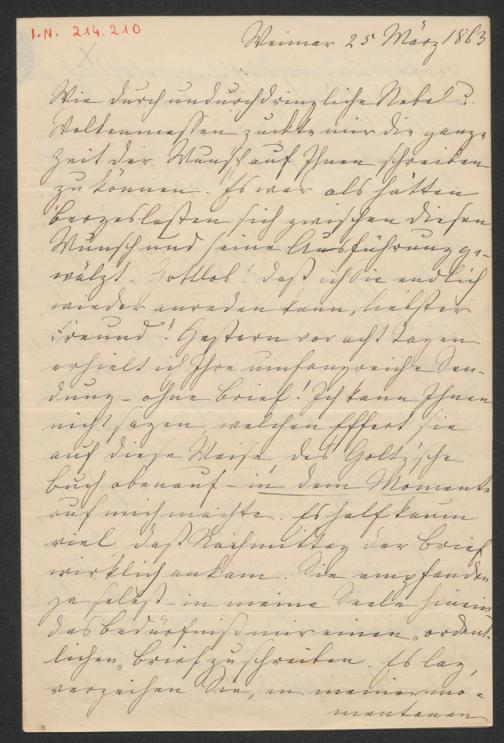 I.N. 214.210
Weimar 25 März 1863
Wie durch undurchdringliche Nebel u.
Wolkenmassen zuckte mir die ganze
Zeit der Wunsch auf Ihnen schreiben
zu können. Es war als hätten
Bergeslasten sich zwischen diesen
Wunsch und seine Ausführung ge-
wälzt. Gottlob! daß ich Sie endlich
wieder anreden kann, liebster
Freund! Gestern vor acht Tagen
erhielt ich Ihre umfangreiche Sen-
dung – ohne Brief! Ich kann Ihnen
nicht sagen, welchen Effect sie
auf diese Weise, das Goltz'sche
Buch obenauf – in dem Momente
auf mich machte. Es half kaum
viel, daß Nachmittag der Brief
wirklich ankam. Sie empfanden
ja selbst – in meine Seele hinein
das Bedürfniß mir einen „ordent-
lichen„ Brief zu schreiben. Es lag,
verzeihen Sie, an meiner mo-
mentanen